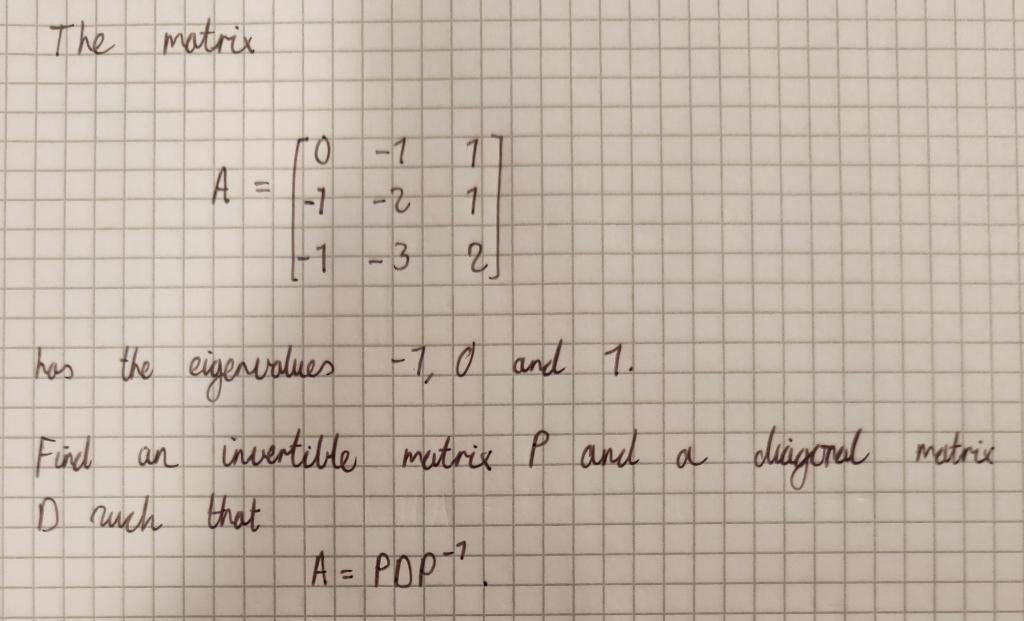 The matrix
A = [0 -1 1
-1 -2 1
-1 -3 2]
has the eigenvalues -1, 0 and 1.
Find an invertible matrix P and a diagonal matrix
D such that
A = PDP⁻¹.